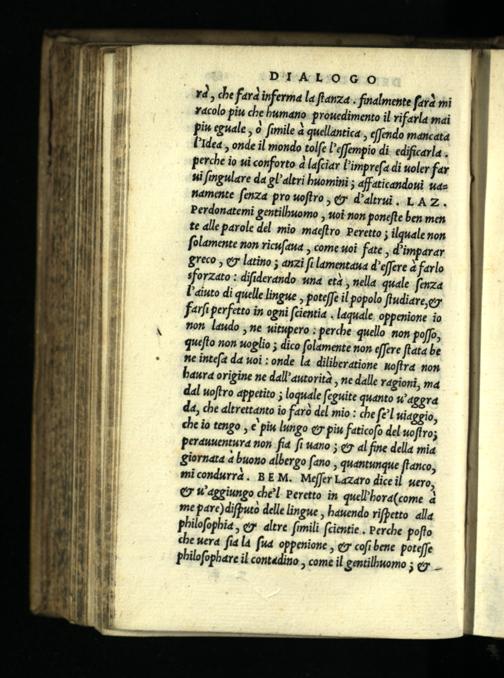 DIALOGO
rà, che farà inferma la stanza. finalmente sarà mi
racolo piu che humano prouedimento il rifarla mai
piu eguale, ò simile à quellantica, essendo mancata
l'Idea, onde il mondo tolse l'essempio di edificarla.
perche io ui conforto à lasciar l'impresa di uoler far
ui singulare da gl'altri huomini; affaticandoui ua=
namente senza pro uostro, & d'altrui. LAZ.
Perdonatemi gentilhuomo, uoi non poneste ben men
te alle parole del mio maestro Peretto; ilquale non
solamente non ricusaua, come uoi fate, d'imparar
greco, & latino; anzi si lamentaua d'essere à farlo
sforzato: disiderando una età, nella quale senza
l'aiuto di quelle lingue, potesse il popolo studiare, &
farsi perfetto in ogni scientia. laquale oppenione io
non laudo, ne uitupero: perche quello non posso,
questo non uoglio; dico solamente non essere stata be
ne intesa da uoi: onde la diliberatione uostra non
haura origine ne dall'autorità, ne dalle ragioni, ma
dal uostro appetito; loquale seguite quanto u'aggra
da, che altrettanto io farò del mio: che se'l uiaggio,
che io tengo, e piu lungo & piu faticoso del uostro;
perauuentura non fia si uano; & al fine della mia
giornata à buono albergo sano, quantunque stanco,
mi condurrà. BEM. Messer Lazaro dice il uero,
& u'aggiungo che'l Peretto in quell'hora (come à
me pare) disputò delle lingue, hauendo rispetto alla
philosophia, & altre simili scientie. Perche posto
che uera sia la sua oppenione, & cosi bene potesse
philosophare il contadino, come il gentilhuomo; &